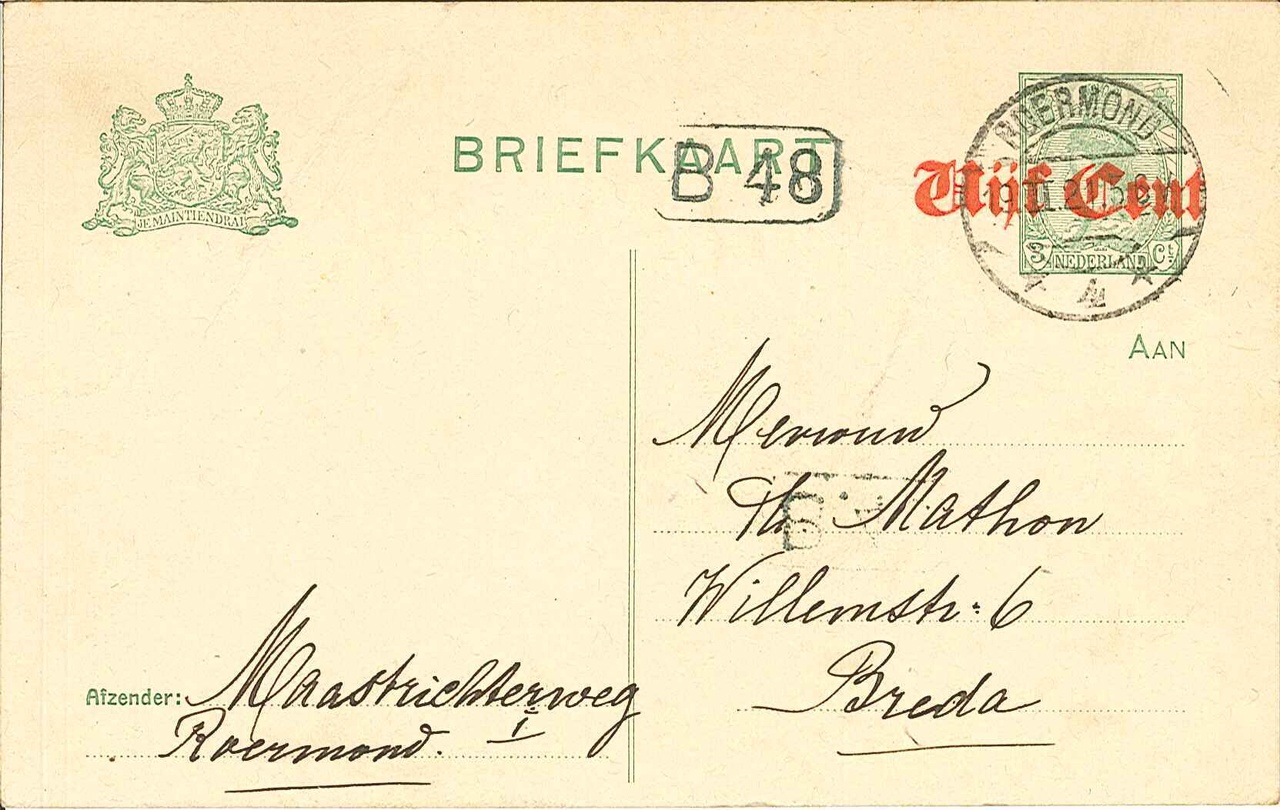 JE MAINTIENDRAI
BRIEFKAART
B 48
ROERMOND
19 II 21
Vijf Cent
3 NEDERLAND Ct
4
AAN
Mevrouw
Th Mathon
Willemstr. 6
Breda
Afzender: Maastrichterweg
1
Roermond.